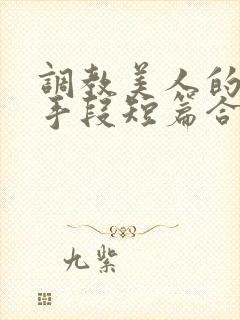 調教美人的
手段短篇合
九紫